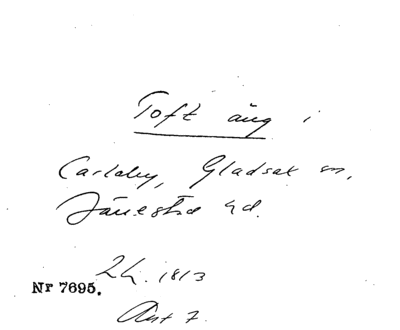 Toft äng i
Carlaby, Gladsax sn,
Järrestad hd.
LH. 1813
Nr 7695.
Akt 7.